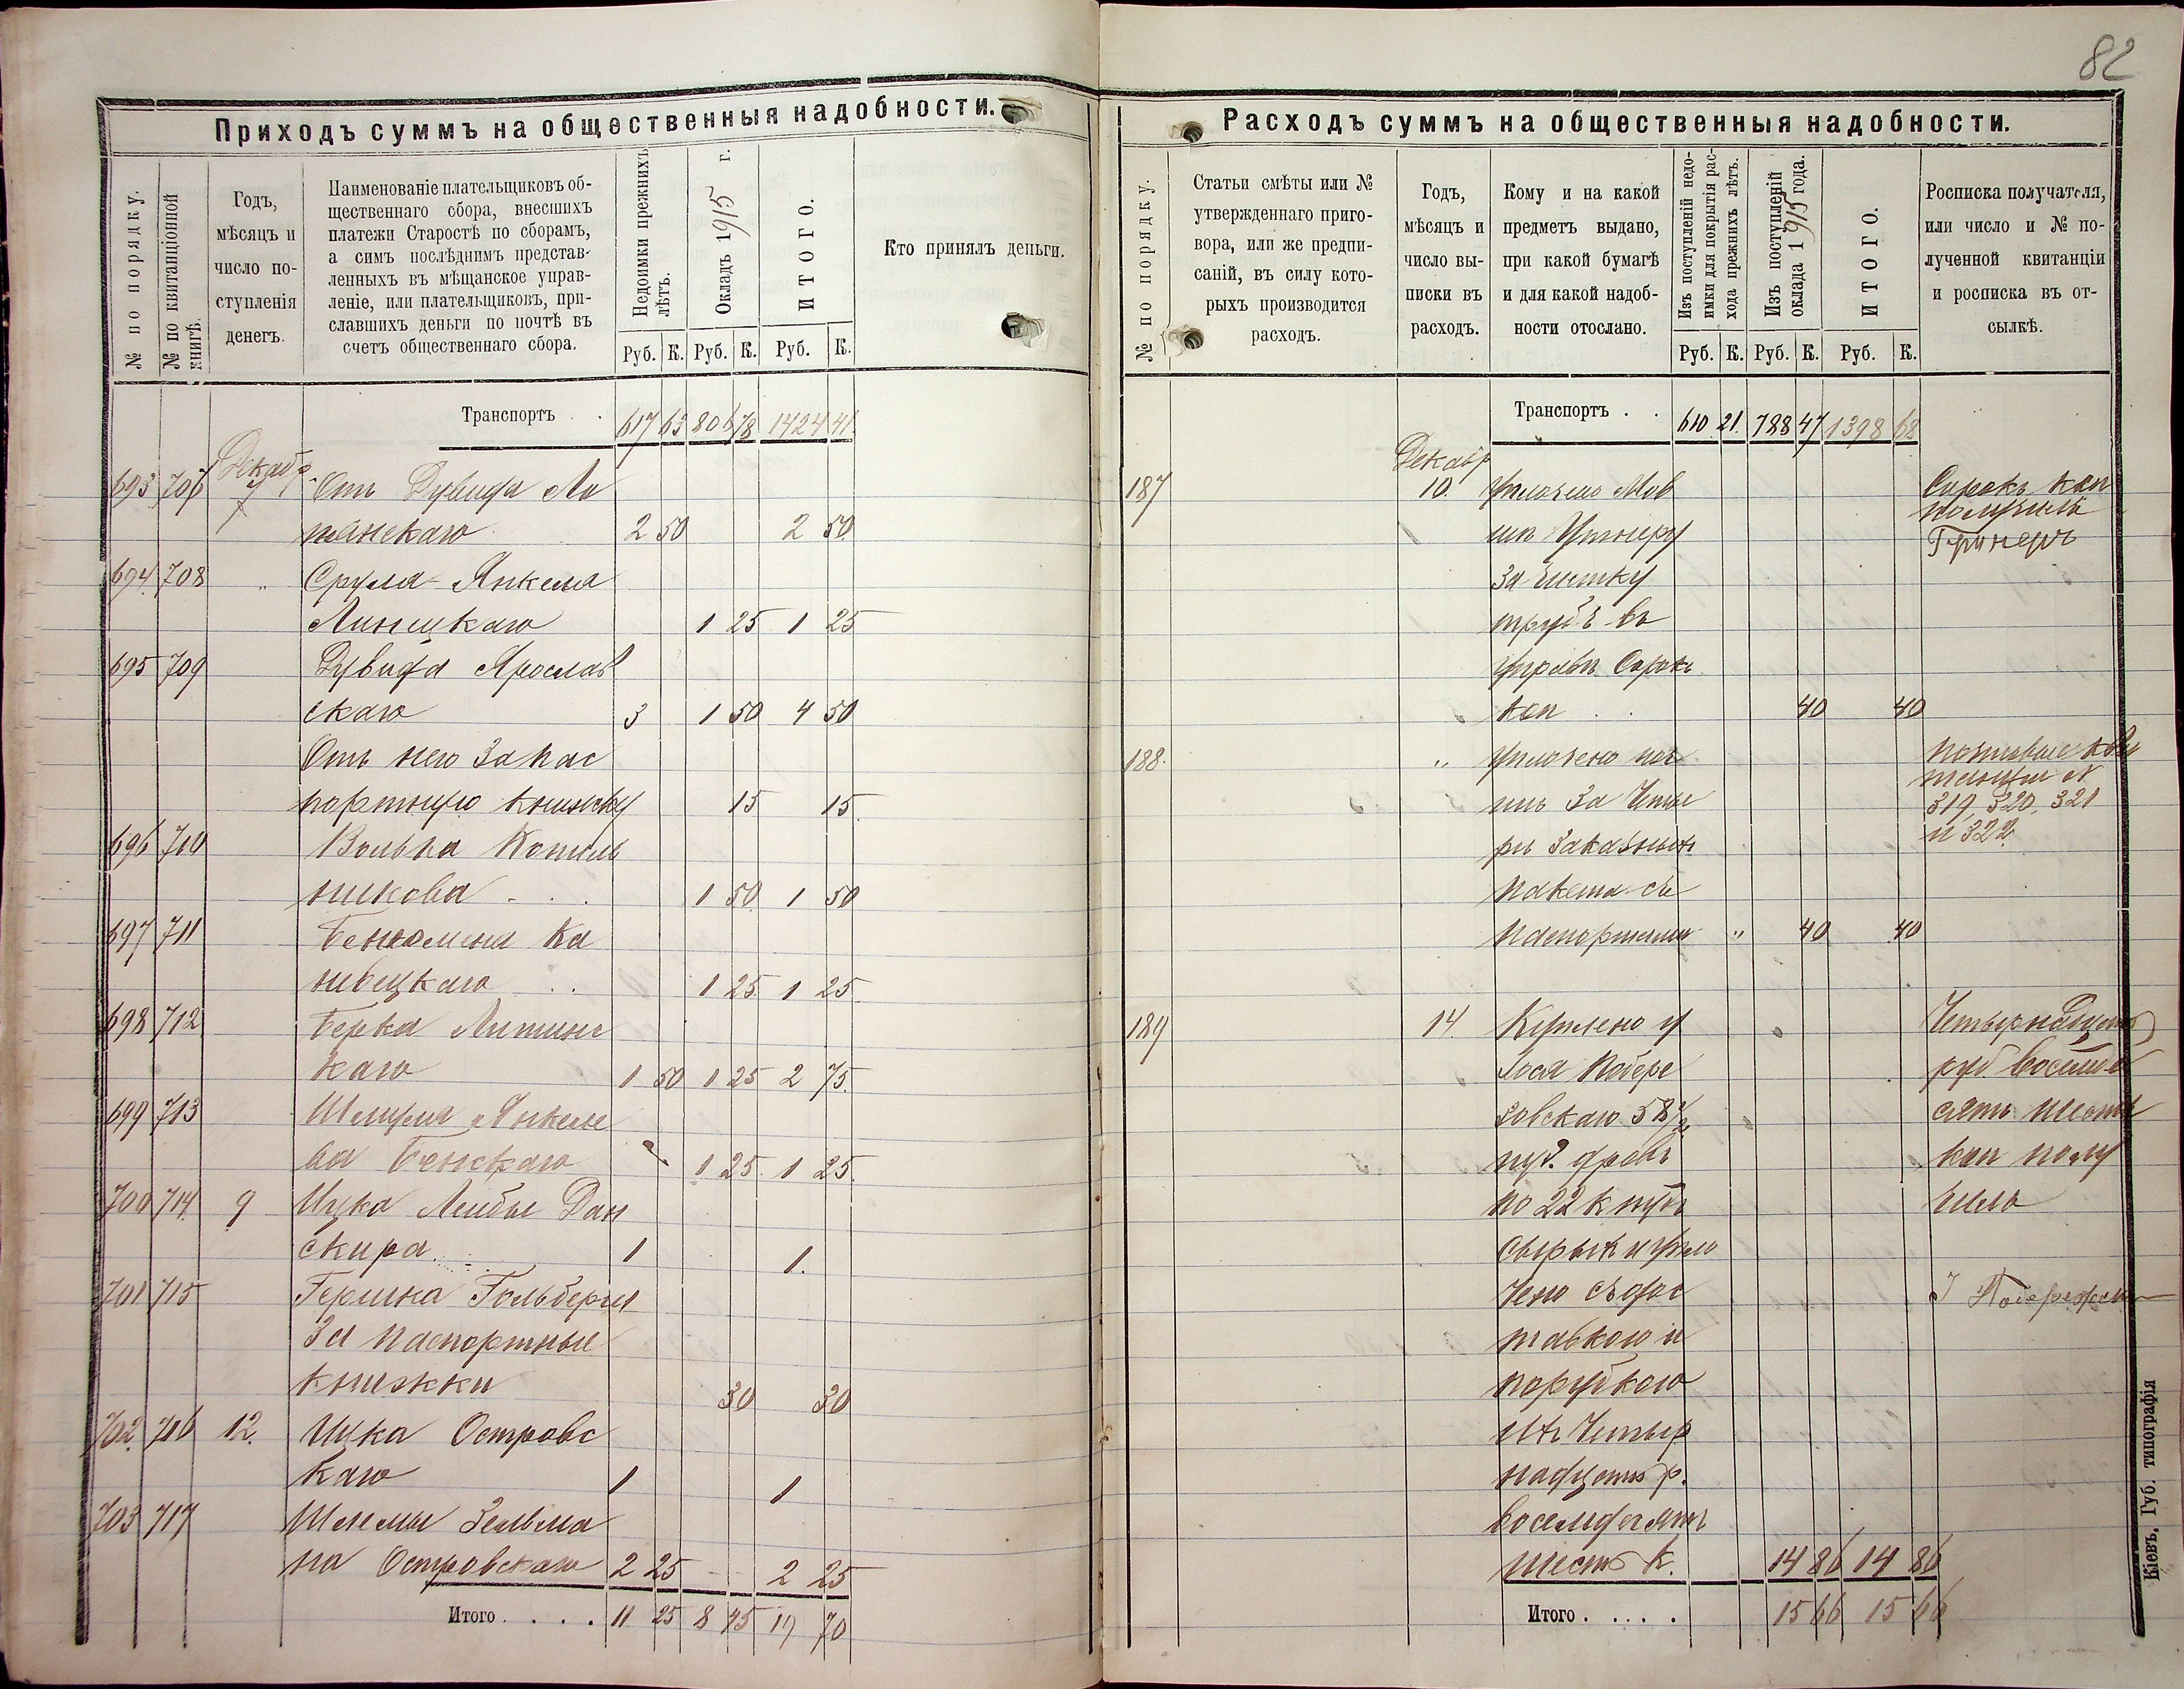 82
Приходъ суммъ на общественныя надобности.
№ по порядку.
№ по квитанціонной книгѣ.
Годъ,
мѣсяцъ и
число по-
ступленія
денегъ.
Наименованіе плательщиковъ об-
щественнаго сбора, внесшихъ
платежи Старостѣ по сборамъ,
а симъ послѣднимъ представ-
ленныхъ въ мѣщанское управ-
леніе, или плательщиковъ, при-
славшихъ деньги по почтѣ въ
счетъ общественнаго сбора.
Недоимки прежнихъ
лѣтъ.
Окладъ 1915 г.
ИТОГО.
Руб. К. Руб. К. Руб. К.
Кто принялъ деньги.
Транспортъ . . 617 63 806 78 1424 41
Декабр
693 707 7 Отъ Дувида Ли
пянскаго 2 50 2 50
694 708 „ Сруля-Янкеля
Линецкаго 1 25 1 25
695 709 Дувида Ярослав
скаго 3 1 50 4 50
Отъ него за пас
портную книжку 15 15
696 710 Волька Котель
никова . . . 1 50 1 50
697 711 Беньомена Ка
невецкаго . . 1 25 1 25
698 712 Берка Литинс
каго 1 50 1 25 2 75
699 713 Шмуля Янкеле
ва Бенскаго 1 25 1 25
700 714 9 Ицка Лейбы Дан
скира 1 1.
701 715 Гершка Гольберга
За паспортныя
книжки 30 30
702 716 12. Ицка Островс
каго 1 1
703 717 Шлемы Зельма
на Островскаго 2 25 2 25
Итого . . . . 11 25 8 45 19 70
Расходъ суммъ на общественныя надобности.
№ по порядку.
Статьи смѣты или №
утвержденнаго приго-
вора, или же предпи-
саній, въ силу кото-
рыхъ производится
расходъ.
Годъ,
мѣсяцъ и
число вы-
писки въ
расходъ.
Кому и на какой
предметъ выдано,
при какой бумагѣ
и для какой надоб-
ности отослано.
Изъ поступленій недо-
имки для покрытія рас-
хода прежнихъ лѣтъ.
Изъ поступленій
оклада 1915 года.
ИТОГО.
Руб. К. Руб. К. Руб. К.
Росписка получателя,
или число и № по-
лученной квитанціи
и росписка въ от-
сылкѣ.
Транспортъ . . 610 21. 788 47 1398 68
Декабр
187 10. Уплочено Мов
за чистку
трубъ въ
управѣ Сорокъ
коп . . 40 40
Сорокъ коп
получилъ
188. „ Уплочено поч
тѣ За Четы
ре Заказныхъ
пакета съ
паспортами „ 40 40
Почтовые кви
танціи №
319, 320, 321
и 322.
189 14. Куплено у
Іося Побере
зовскаго 58½
пуд. дровъ
по 22 к пудъ
сырых и упло
чено съ дос
тавкою и
порубкою
ихъ Четыр
надцать р.
восемдесятъ
шесть К. 14 86 14 86
Четырнадцать
руб восемде
сятъ шесть
коп полу
чилъ
Итого . . . . 15 66 15 66
Кіевъ, Губ. типографія